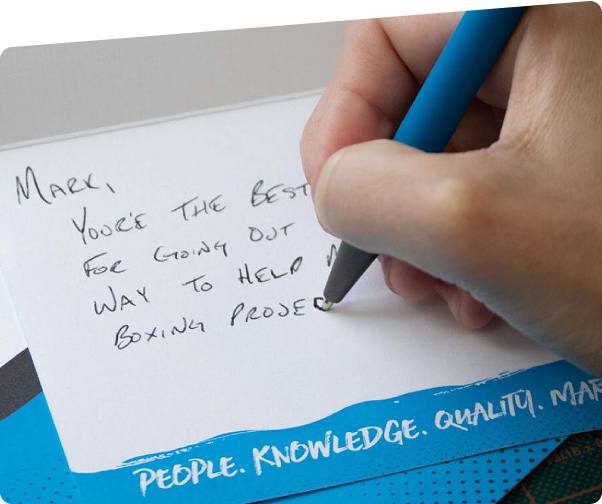 MARK,
YOU'RE THE BEST
FOR GOING OUT
WAY TO HELP
BOXING PROJE
PEOPLE. KNOWLEDGE. QUALITY. MAR